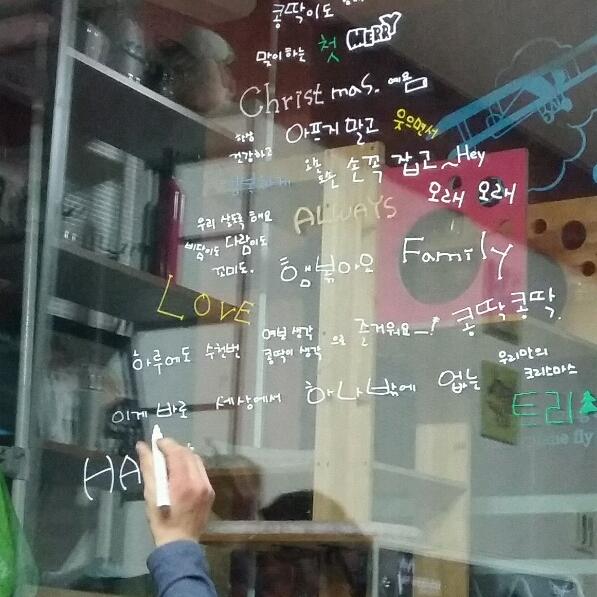 콩딱이도
맞이하는 첫 MERRY
Christmas. 예용
항상 건강하고 아프지 말고 웃으면서
두손 손꼭 잡고 ~Hey
오래 오래
우리 살도록 해요 ALWAYS
다람이도
꼬미도. 햄볶아요 Family
LOVE
하루에도 수천번 여보 생각 콩딱이 생각 으로 즐거워요 ㅡ! 콩딱콩딱.
이게 바로 세상에서 하나밖에 없는 우리만의 크리스마스 트리
HA
plane fly